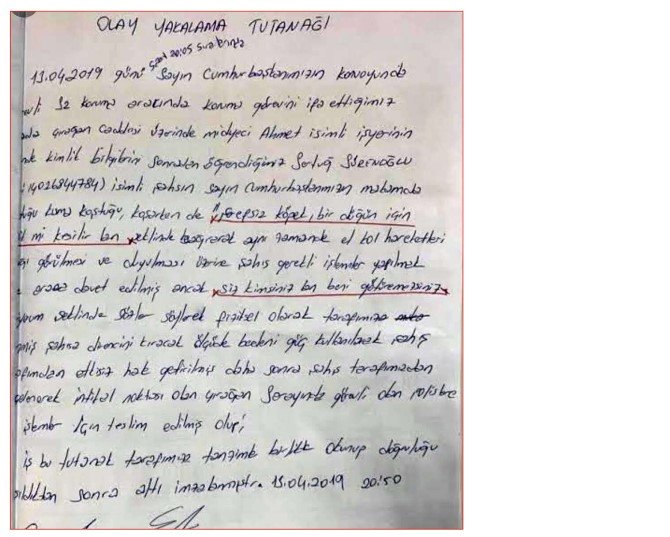 OLAY YAKALAMA TUTANAĞI
saat 20:05 sıralarında
13.04.2019 günü Sayın Cumhurbaşkanımızın konvoyunda
12 koruma aracında koruma görevini ifa ettiğimiz
Çırağan Caddesi üzerinde midyeci Ahmet isimli işyerinin
kimlik bilgilerini sonradan öğrendiğimiz
14026844784) isimli şahsın sayın cumhurbaşkanımızın makamda
koştuğu, koşarken de " şerefsiz köpek, bir düğün için
mi kesilir lan şeklinde bağırarak aynı zamanda el kol hareketleri
görülmesi ve duyulması üzerine şahıs gerekli işlemler yapılmak
davet edilmiş ancak siz kimsiniz lan beni götüremezsiniz
şeklinde sözler söyleyerek fiziksel olarak tarafımıza
şahsa direncini kıracak ölçüde bedeni güç kullanılarak şahıs
etkisiz hale getirilmiş daha sonra şahıs tarafımızdan
intikal noktası olan Çırağan Sarayında görevli olan polislere
işlemler için teslim edilmiş olup;
iş bu tutanak tarafımızca tanzimle birlikte okunup doğruluğu
sonra altı imzalanmıştır. 13.04.2019 20:50